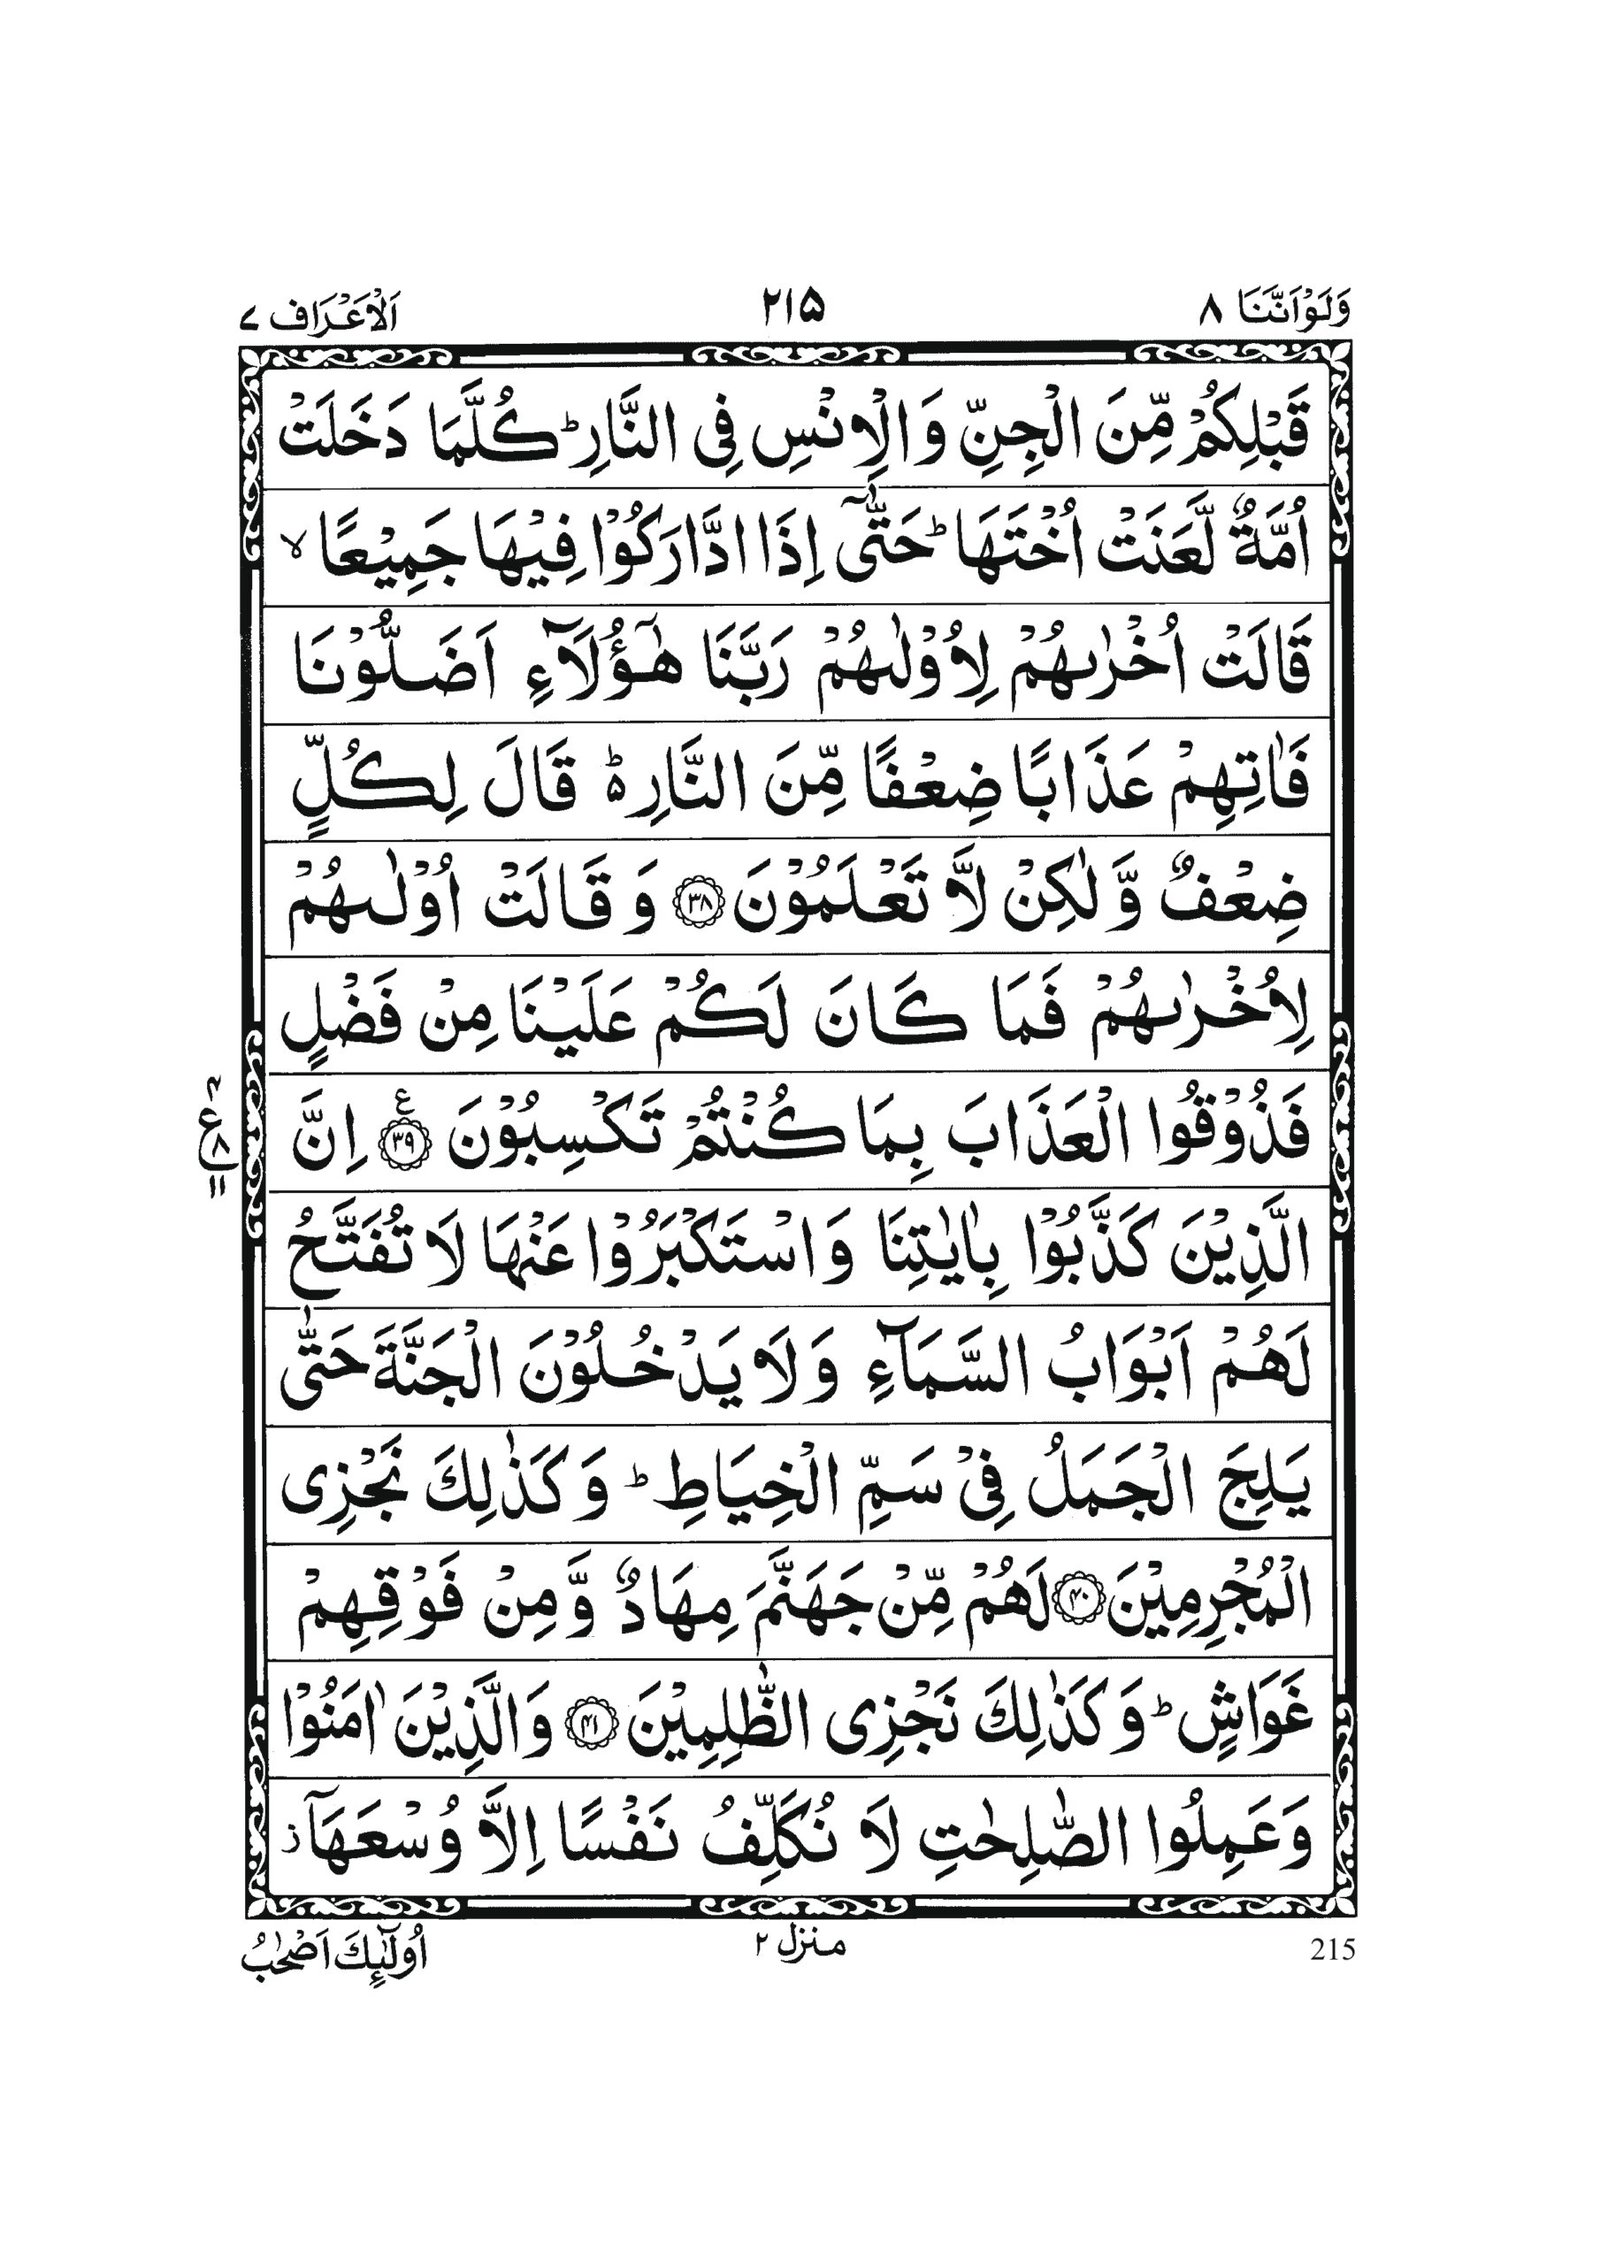 وَلَوْاَنَّنَا ٨
٢١٥
اَلْاَعْرَاف ٧
قَبْلِكُمْ مِّنَ الْجِنِّ وَالْاِنْسِ فِی النَّارِ ؕ كُلَّمَا دَخَلَتْ
اُمَّةٌ لَّعَنَتْ اُخْتَهَا ؕ حَتّٰۤی اِذَا ادَّارَكُوْا فِیْهَا جَمِیْعًا ۙ
قَالَتْ اُخْرٰىهُمْ لِاُوْلٰىهُمْ رَبَّنَا هٰۤؤُلَآءِ اَضَلُّوْنَا
فَاٰتِهِمْ عَذَابًا ضِعْفًا مِّنَ النَّارِ ؕ۬ قَالَ لِكُلٍّ
ضِعْفٌ وَّلٰكِنْ لَّا تَعْلَمُوْنَ ﴿٣٨﴾ وَقَالَتْ اُوْلٰىهُمْ
لِاُخْرٰىهُمْ فَمَا كَانَ لَكُمْ عَلَیْنَا مِنْ فَضْلٍ
فَذُوْقُوا الْعَذَابَ بِمَا كُنْتُمْ تَكْسِبُوْنَ ﴿٣٩﴾ ع اِنَّ
الَّذِیْنَ كَذَّبُوْا بِاٰیٰتِنَا وَاسْتَكْبَرُوْا عَنْهَا لَا تُفَتَّحُ
لَهُمْ اَبْوَابُ السَّمَآءِ وَلَا یَدْخُلُوْنَ الْجَنَّةَ حَتّٰی
یَلِجَ الْجَمَلُ فِیْ سَمِّ الْخِیَاطِ ؕ وَكَذٰلِكَ نَجْزِی
الْمُجْرِمِیْنَ ﴿٤٠﴾ لَهُمْ مِّنْ جَهَنَّمَ مِهَادٌ وَّمِنْ فَوْقِهِمْ
غَوَاشٍ ؕ وَكَذٰلِكَ نَجْزِی الظّٰلِمِیْنَ ﴿٤١﴾ وَالَّذِیْنَ اٰمَنُوْا
وَعَمِلُوا الصّٰلِحٰتِ لَا نُكَلِّفُ نَفْسًا اِلَّا وُسْعَهَاۤ ؗ
215
منزل ٢
اُولٰٓئِكَ اَصْحٰبُ